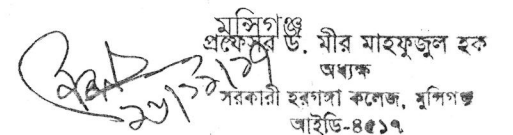 মুন্সিগঞ্জ
প্রফেসর ড. মীর মাহফুজুল হক
অধ্যক্ষ
সরকারী হরগঙ্গা কলেজ, মুন্সিগঞ্জ
আইডি-৪৫১৭